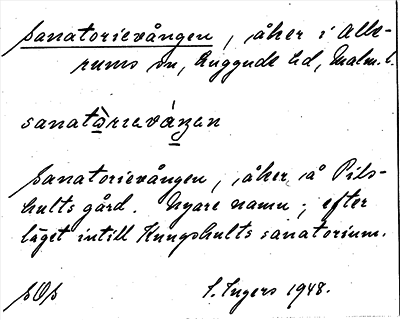 Sanatorievången, åker i Alle-
rums sn, Luggude hd, Malm. l.
sanatòrıevàŋen
Sanatorievången, åker å Pils-
hults gård. Nyare namn; efter
läget intill Kungshults sanatorium.
SOS
I. Ingers 1948.